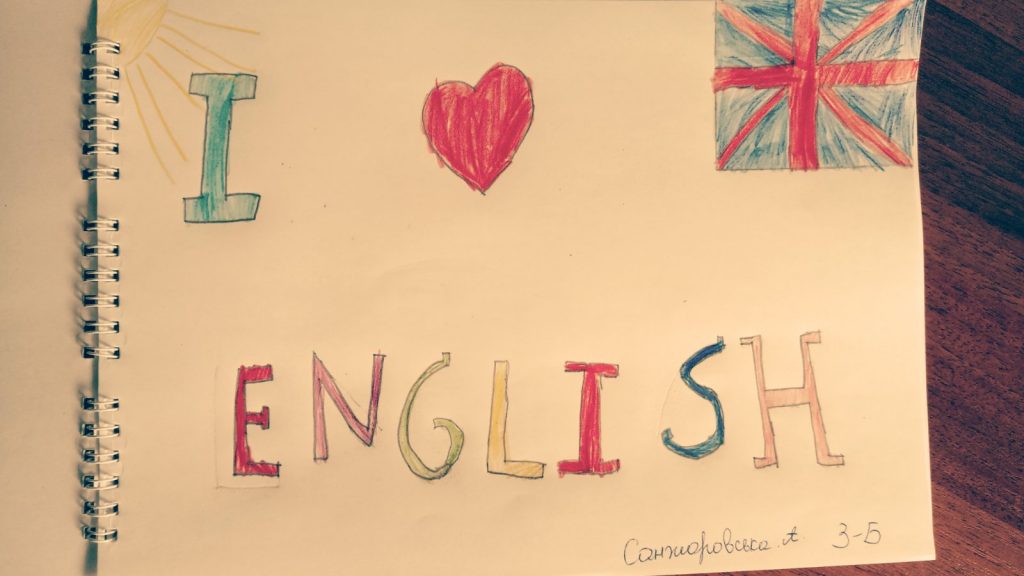 I
ENGLISH
Санжаровська А. 3-Б